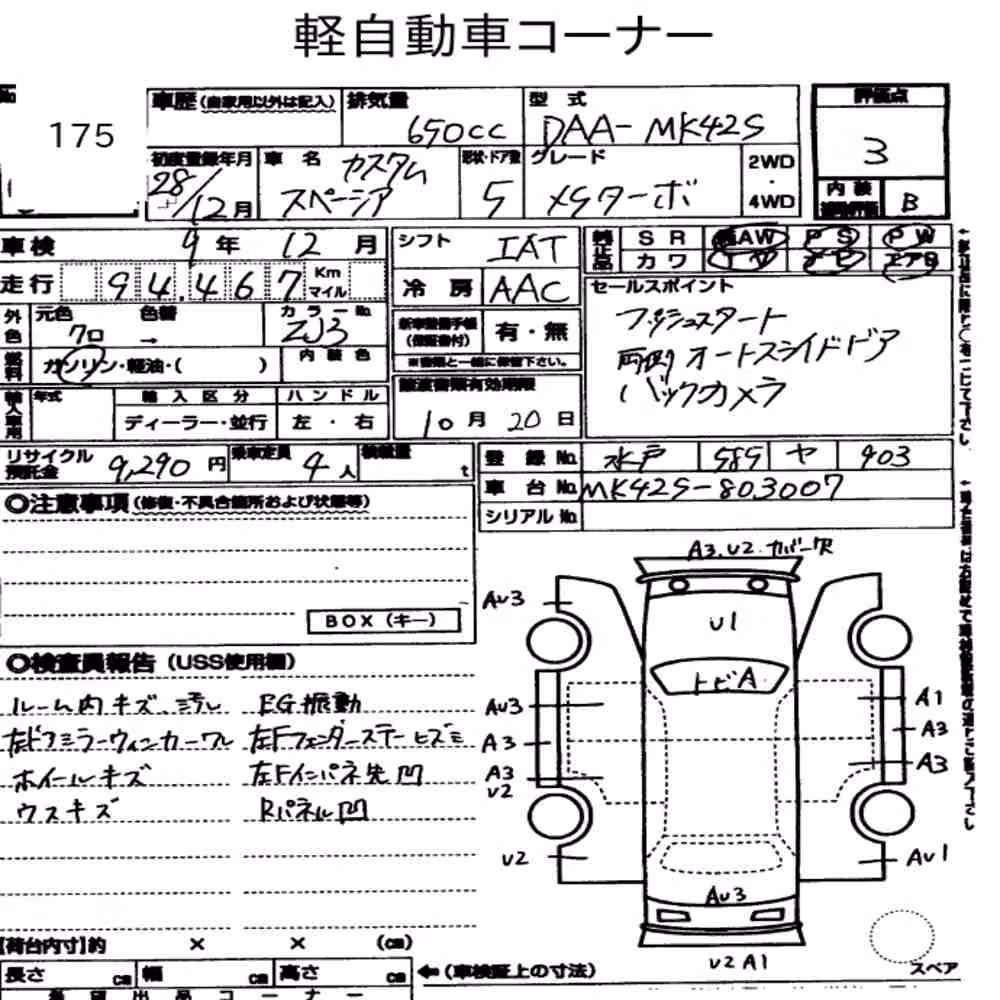 軽自動車コーナー
No
175
車歴 (自家用以外は記入) 排気量 650cc 型式 DAA-MK42S 評価点 3
初度登録年月 28/12月 車名 カスタム スペーシア 形状・ドア数 5 グレード XSターボ 2WD・4WD 内装 B
車検 9年 12月 シフト IAT 純正品 SR AW PS PW
カワ
走行 94,467 Km マイル 冷房 AAC セールスポイント
プッシュスタート
両側オートスライドドア
バックカメラ
外色 元色 クロ 色替 → カラーNo. ZJ3 新車整備手帳 (保証書付) 有・無
※書類と一緒に保管下さい。
燃料 ガソリン・軽油・( ) 内装色
譲渡書類有効期限
10月 20日
輸入車用 年式 輸入区分 ディーラー・並行 ハンドル 左・右
リサイクル預託金 9,290円 乗車定員 4人 積載量 t 登録No. 水戸 585 ヤ 903
車台No. MK42S-803007
シリアルNo.
◎注意事項 (修復・不具合箇所および状態等)
BOX (キー)
◎検査員報告 (USS使用欄)
ルーム内キズ、汚レ EG振動
左ドアミラーウィンカーワレ 左Fフェンダーステーヒズミ
ホイールキズ 左Fインパネ先凹
ウスキズ Rパネル凹
A3.U2.カバー欠
AU3
U1
トビA
AU3 A1
A3 A3
A3 U2 A3
U2 AU1
AU3
U2A1
スペア
[荷台内寸]約 × × (cm)
長さ cm 幅 cm 高さ cm ←(車検証上の寸法)
希望出品コーナー